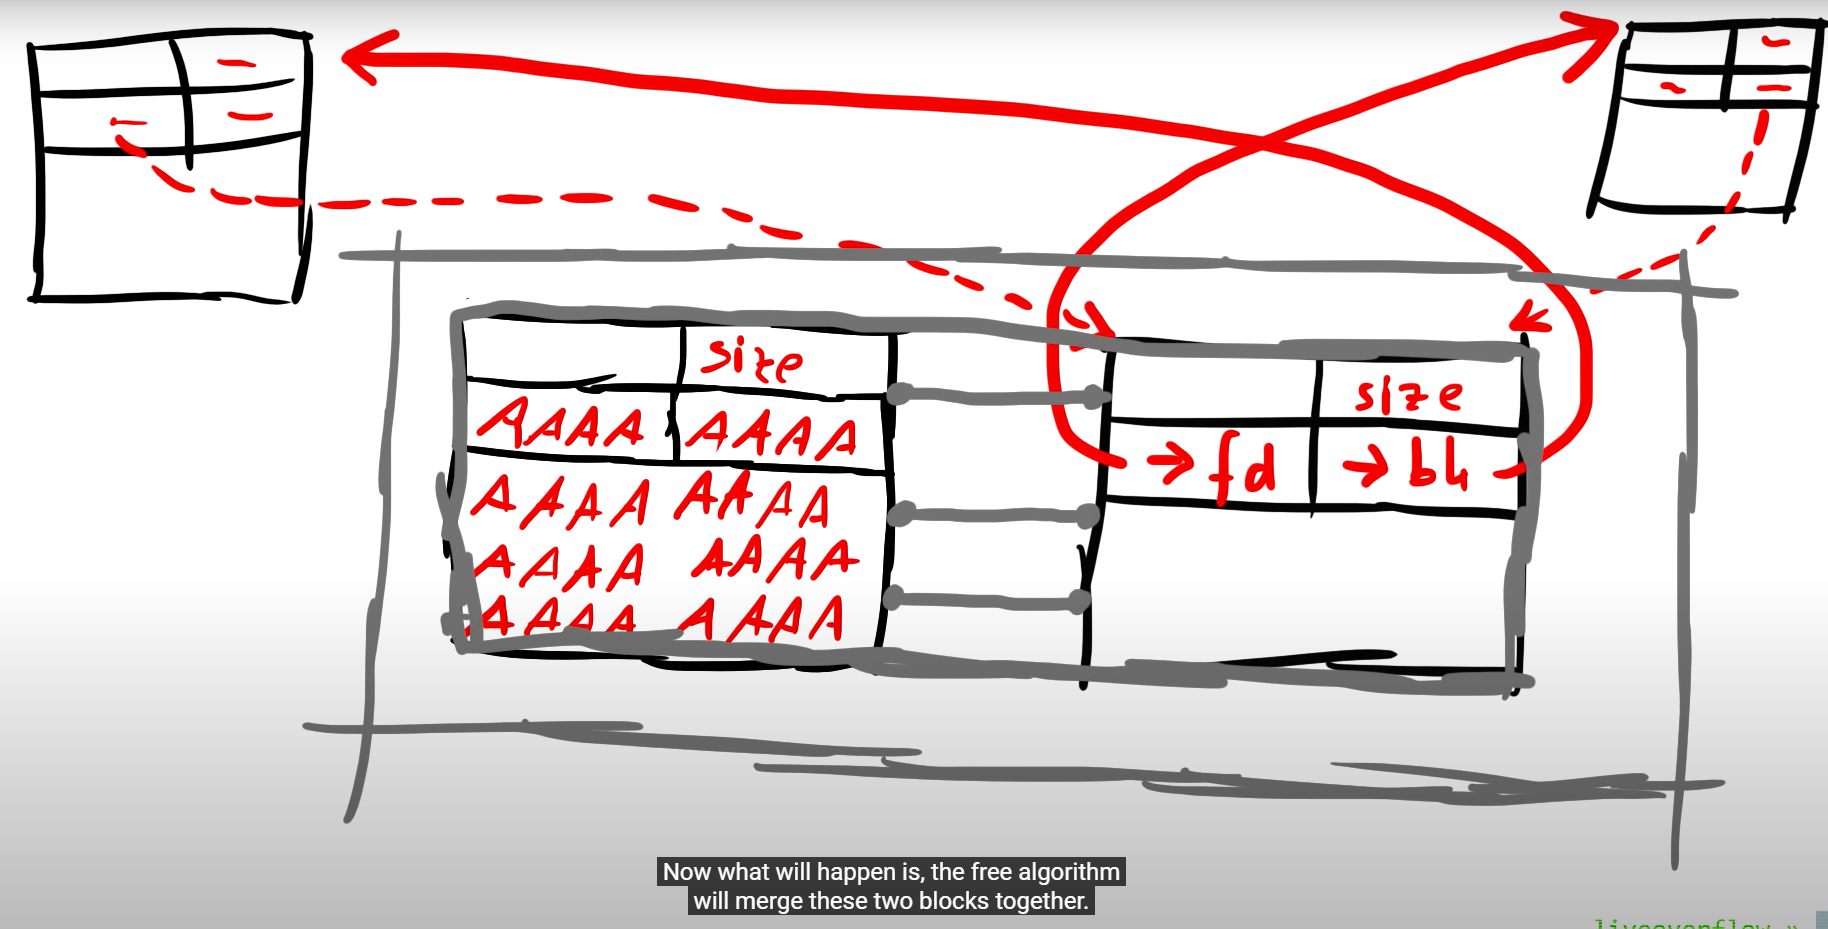 size
AAAA AAAA
AAAA AAAA
AAAA AAAA
AAAA AAAA
size
→ fd → bk
Now what will happen is, the free algorithm
will merge these two blocks together.
liveoverflow »